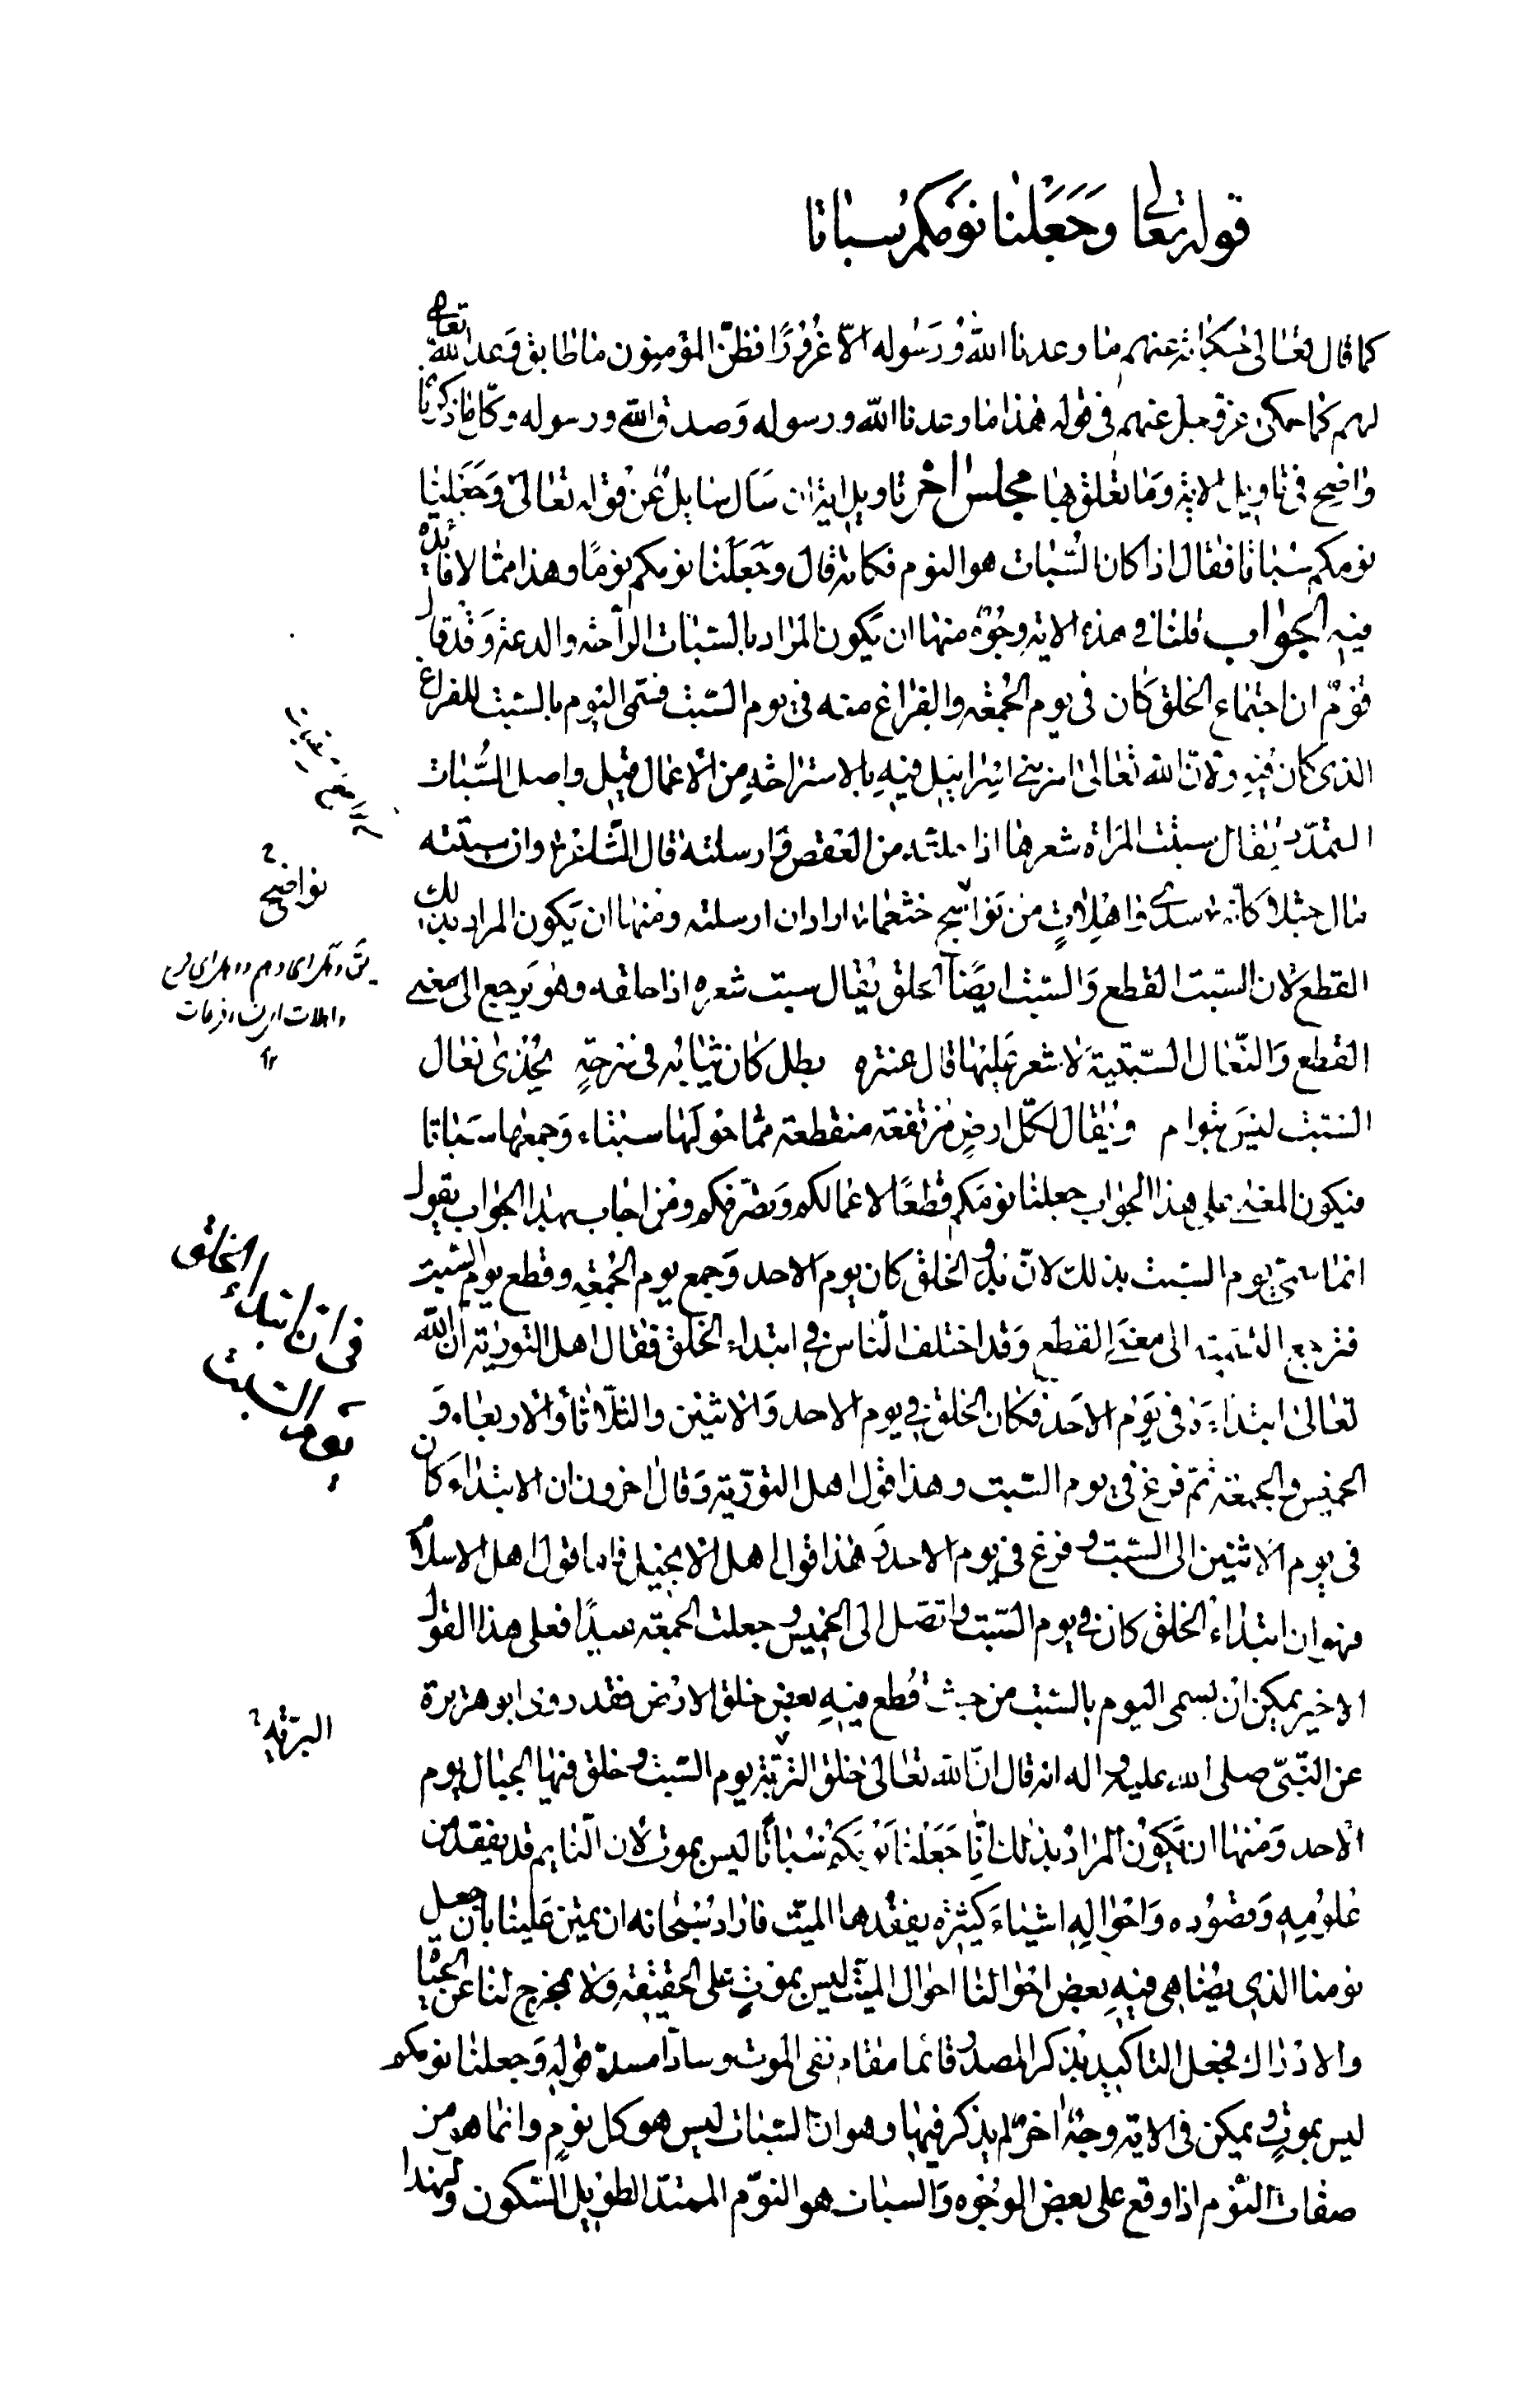 قوله تعالى وَجَعَلْنا نَوْمَكُمْ سُباتا
كما قال تعالى حكاية عنهم ما وعدنا اللهُ وَرَسُوله الّا غُرُورًا فظنّ المؤمنون ما طابق وَعد الله تعالى
لهم كما حكى عزّ وجل عنهم في قوله هذا ما وعدنا الله ورسوله وَصدق الله ورسوله وكلّ ما ذكرنا
واضح في تاويل الاية وَما تعلق بها مجلس اخر تاويل اية ان سَاَل سايل عَن قوله تعالى وَجَعَلنا
نومكم سُباتا فقال اذا كان السُّبات هو النوم فكانه قال وجَعَلْنا نومكم نومًا وهذا ممّا لا فائدة
فيه الجواب قلنا في هذه الاية وجُوهٌ منها ان يَكون المراد بالسّبات الراحة والدعة وَقد قال
قومٌ ان اجتماع الخلق كان في يوم الجُمعَة والفراغ منه في يوم السّبت فسمّى اليوم بالسّبت للفراغ
الذي كان فيه ولانّ الله تعالى امر بني اسرائيل فيه بالاستراحةِ من الاعمال قيل واصل السُّبات
التمدّد يُقال سبتت المراة شعرها اذا حلته من العقص وَارسلته قال الشاعر وان سبتته
مال جثلا كانّه سدى واهلاتٍ من نَواسج خثعما اراد ان ارسلته ومنها ان يَكون المراد بذلك
القطع لان السّبت القطع وَالسّبت ايضًا الحلق يُقال سبت شعره اذا حلقه وهو يَرجع الى معنى
القطع وَالنّعال السّبتيّة الّتي لا شعر عَليها قال عنتره بطل كان ثيابُه في سرحةٍ يُحْذى نعال
السّبت ليسَ بتوام وَيُقال لكلّ ارضٍ مُرتفعة منقطعة ممّا حَولَها سبتاء وَجمعها سَباتا
فيكون المعنى على هذا الجواب جعلنا نومَكم قطعًا لاعمالكم وَتصّرفكم ومَن اجاب بهذا الجواب يقول
انما سُمّي يوم السّبت بذلك لانّ بدؤ الخلق كان يوم الاحد وَجمع يوم الجُمعةِ وقطع يوم السّبت
فترجع التسمية الى معنى القطع وَقد اختلف الناس في ابتداء الخلق فقال اهل التوراية ان الله
تعالى ابتداءَه في يَوم الاحَد فكان الخلق في يوم الاحد وَالاثنين والثلاثا والاربعاء وَ
الخميس والجمعة ثمّ فرغ في يوم السّبت وهذا قول اهل التورية وَقال اخرون ان الابتداء كان
في يوم الاثنين الى السّبت وفرغ في يوم الاحد وَهذا قول اهل الانجيل فامّا قول اهل الاسلام
فهو ان ابتداءَ الخلق كان في يوم السّبت واتصل الى الخميس وجعلت الجمعة عيدًا فعلى هذا القول
الاخير يمكن ان يسمى اليوم بالسّبت من حيث قُطع فيهِ بعض خلق الارض فقد روى ابو هريرة
عن النّبيّ صلى الله عليه واله انه قال انّ الله تعالى خلق التربة يوم السّبت وخلق فيها الجبال يوم
الاحد وَمنها ان يَكون المرادُ بذلك انّا جَعَلْنا نَومَكم سُباتًا ليس بموت لان النّايم قد يفقد من
عُلومِهِ وَقصُوده وَاحْوالِهِ اشياءَ كثيرة يفقدها الميّت فاراد سُبحانه ان يمتن عَلينا بان جعل
نومنا الذي يُضاهى فيهِ بعض احوالنا احوال الميّت ليس بموتٍ على الحقيقة وَلا بمخرج لنا عن الحيٰا
والادراك فجعل التاكيد بذكر المصدر قائما مقام نفي الموت وسادّا مسدّ قوله وَجعلنا نومكم
ليس بموتٍ ويمكن في الاية وجهٌ اخر لم يذكر فيها وهو ان السّبات ليس هو كل نومٍ وانما هو من
صفات النّوم اذا وقع على بعض الوجُوه وَالسبات هو النوّم الممتدّ الطويل السّكون ولهذا
نواضح
في ان ابتداء الخلق
يوم السبت
البرّيّة